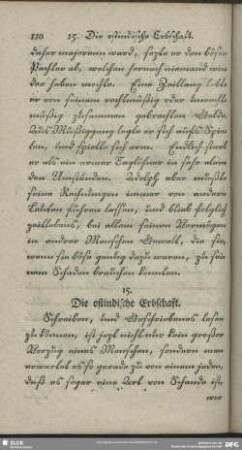 110 15. Die ostindische Erbschaft.
daher majorenn ward, setzte er den bösen
Pachter ab, welchen hernach niemand wie-
der haben mochte. Eine Zeitlang lebte
er von seinem
müßig zusammen gebrachten Gelde.
Aus Müßiggang legte er sich aufs Spie-
len, und spielte sich arm. Endlich starb
er als ein armer Tagelöhner in sehr elen-
den Umständen. Adolph aber mußte
seine Rechnungen immer von andern
Leuten führen lassen, und blieb folglich
zeitlebens, bei allem seinen Vermögen
in andrer Menschen Gewalt, die sie,
wenn sie böse genug dazu waren, zu sei-
nem Schaden brauchen konnten.
15.
Die ostindische Erbschaft.
Schreiben, und Geschriebenes lesen
zu können, ist jetzt nicht nur kein großer
Vorzug eines Menschen, sondern man
erwartet es so gerade zu von einem jeden,
daß es sogar eine Art von Schande ist,
wer